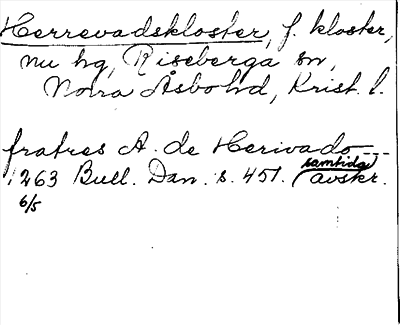 Herrevadskloster, f. kloster,
nu hg, Riseberga sn,
Norra Åsbohd, Krist. l.
fratres A. de Herivado ---
1263 Bull. Dan. s. 451. (samtida avskr.
6/5